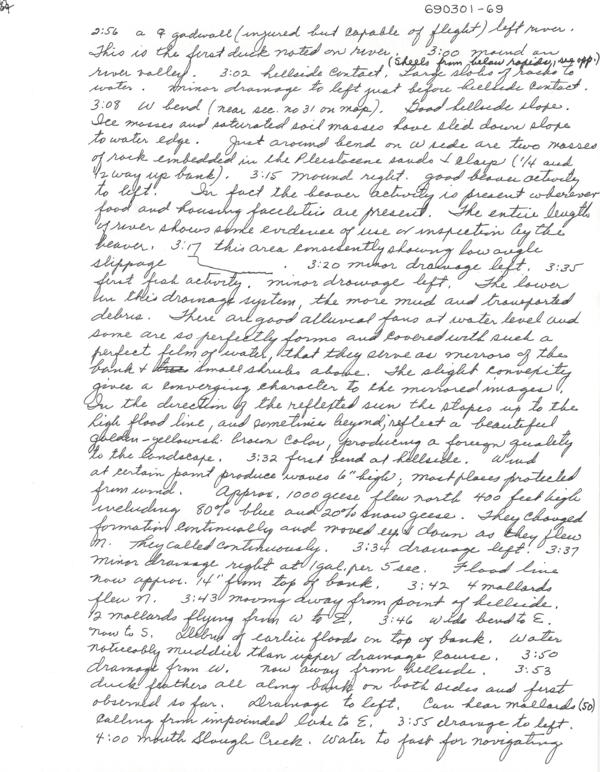 690301-69
2:56 a ♀ gadwall (injured but capable of flight) left river.
This is the first duck noted on river. 3:00 mound on
(Shells from below rapids, seg opp.)
river valley. 3:02 hillside contact. Large slabs of rocks to
water. Minor drainage to left just before hillside contact.
3:08 W bend (near sec. no 31 on map). Good hillside slope.
Ice masses and saturated soil masses have slid down slope
to water edge. Just around bend on W side are two masses
of rock embedded in the Pleistocene sands & clays (1/4 and
1/2 way up bank). 3:15 mound right. good beaver activity
to left. In fact the beaver activity is present wherever
food and housing facilities are present. The entire length
of river shows some evidence of use or inspection by the
beaver. 3:17 this area consistently showing low angle
slippage . 3:20 minor drainage left. 3:35
first fish activity. minor drainage left. The lower
in this drainage system, the more mud and transported
debris. There are good alluvial fans at water level and
some are so perfectly forms and covered with such a
perfect film of water, that they serve as mirrors of the
bank & small shrubs above. The slight convexity
gives a converging character to the mirrored images.
In the direction of the reflected sun the slopes up to the
high flood line, and sometimes beyond, reflect a beautiful
golden-yellowish brown color, producing a foreign quality
to the landscape. 3:32 first bend at hillside. Wind
at certain point produce waves 6" high; most places protected
from wind. Approx. 1000 geese flew north 400 feet high
including 80% blue and 20% snow geese. They changed
formation continually and moved up & down as they flew
N. They called continuously. 3:34 drainage left. 3:37
minor drainage right at 1 gal. per 5 sec. Flood line
now approx. 14" from top of bank. 3:42 4 mallards
flew N. 3:43 moving away from point of hillside.
12 mallards flying from W to E. 3:46 wide bend to E.
now to S. Debris of earlier floods on top of bank. Water
noticeably muddier than upper drainage course. 3:50
drainage from W. now away from hillside. 3:53
duck feathers all along bank on both sides and first
observed so far. Drainage to left. Can hear mallards (50)
calling from impounded lake to E. 3:55 drainage to left.
4:00 mouth Slough Creek. Water to fast for navigating